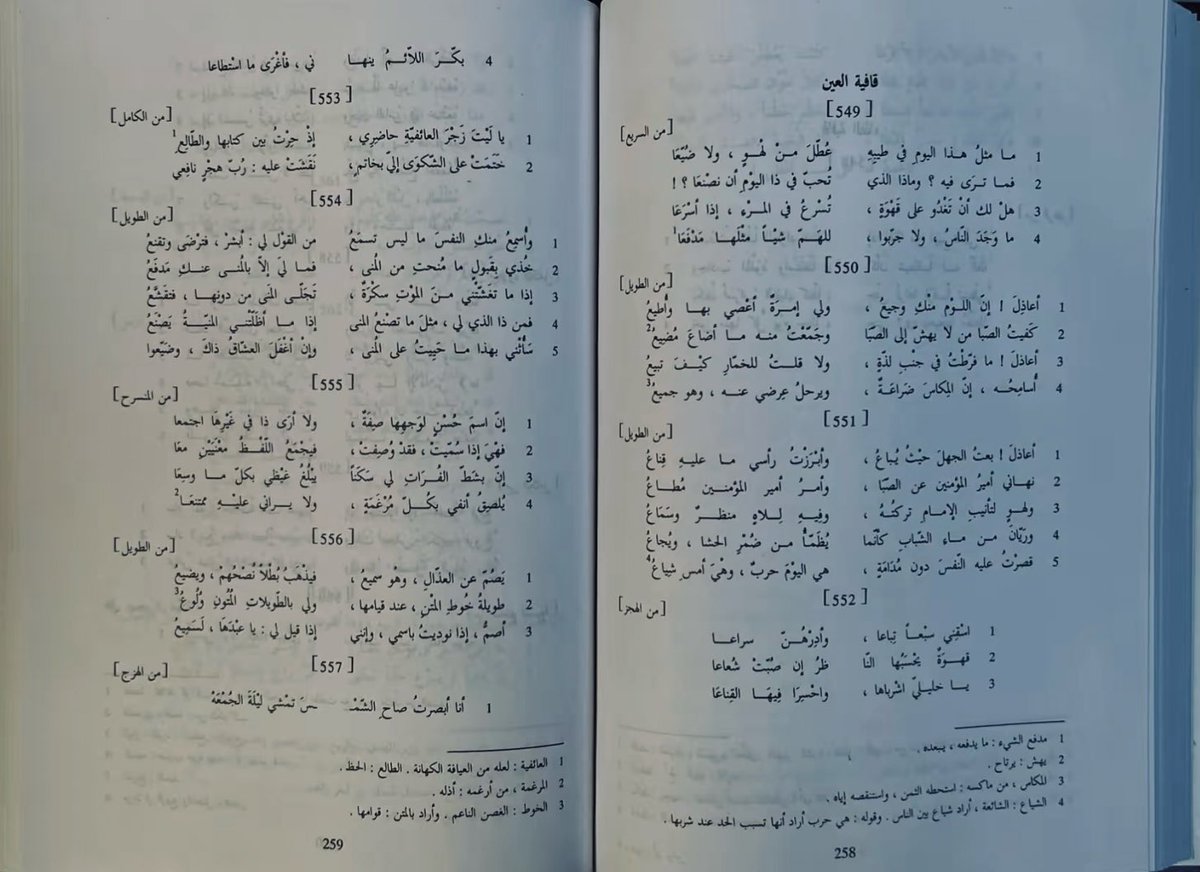 قافية العين
[549]
[من السريع]
1 ما مثلُ هذا اليومِ في طيبِهِ عُطِّلَ مـنْ لهْوٍ ، ولا ضُيِّعَا
2 فمـا تـرَى فيه ؟ وماذا الذي تُحبّ في ذا اليوْمِ أن نصْنَعَا ؟ !
3 هلْ لك أنْ تَغْدُو على قَهْوَةٍ ، تُسْرعُ في المـرْءِ ، إذا أسْرَعَا
4 ما وَجَدَ النّاسُ ، ولا جرّبوا ، للهـمّ شيْـاً مثْلَهـا مَدْفَعَا¹
[550]
[من الطويل]
1 أعاذِلَ ! إنّ اللـوْم منْكِ وجيعُ ، ولي إمـرَةٌ أعْصي بهـا وأُطيعُ
2 كَفيتُ الصّبا من لا يهشّ إلى الصّبا وجَمّعْتُ منـه مـا أضاعَ مُضيعُ²
3 أعاذلَ ! ما فرّطْتُ في جنْبِ لذّةٍ ، ولا قلـتُ للخمّـارِ كيْـفَ تبيعُ
4 أُسامِحُـه ، إنّ المِكاسَ ضَراعَـةٌ ، ويرحلُ عِرضي عنـه ، وهو جميعُ³
[551]
[من الطويل]
1 أعاذلَ ! بعتُ الجهلَ حيْثُ يُباعُ ، وأبْرَزْتُ رأسي مـا عليـهِ قِناعُ
2 نهـاني أميرُ المؤمنين عن الصّبا ، وأمـرُ أميرِ المؤمنـين مُطـاعُ
3 ولهوٍ لتأنيبِ الإمـامِ تركتُـهُ ، وفيـهِ لـلاهٍ منظـرٌ وسَمَاعُ
4 وريّانَ مـن مـاءِ الشّبابِ كأنّما يُظَمّـأُ مـن ضُمْرِ الحشا ، ويُجاعُ
5 قصرْتُ عليه النّفسَ دون مُدَامَةٍ ، هي اليوْمَ حربٌ ، وهْيَ أمسِ شِياعُ⁴
[552]
[من الهجز]
1 اسْقِني سبْعـاً تِباعا ، وأدِرْهُـنّ سراعـا
2 قهـوَةٌ يحْسَبُهـا النّا ظرُ إن صُبّتْ شُعاعا
3 يـا خليليّ اشْرباها ، واحْسِرَا فيهَـا القِناعَا
1 مدفع الشيء : ما يدفعه ، يبعده .
2 يهش : يرتاح .
3 المكاس ، من ماكسه : استحطه الثمن ، واستنقصه إياه .
4 الشياع : الشائعة ، أراد شياع بين الناس . وقوله : هي حرب أراد أنها تسبب الحد عند شربها .
258
4 بكّـرَ اللاّئـمُ ينهـا ني ، فأغْرَى ما اسْتطاعا
[553]
[من الكامل]
1 يا لَيْتَ زَجْرَ العائفيّةِ حاضِري ، إذْ حِرْتُ بين كتابها والطّالعِ¹
2 ختَمَتْ على الشّكوَى إليّ بخاتمٍ ، نَقَشَتْ عليه : رُبّ هجْرٍ نافِعي
[554]
[من الطويل]
1 وأُسمِعُ منكِ النفسَ ما ليس تسمَعُ من القوْل لي : أبشرْ ، فترْضَى وتقنعُ
2 خُذي بقَبولٍ ما مُنحتِ من المُنى ، فمـا ليَ إلاّ بالمُنى عنـكِ مَدفَعُ
3 إذا ما تغَشّتْني مـنَ المـوْتِ سكْرَةٌ ، تَجلّـى المُنى من دونهـا ، فتقشَّعُ
4 فمن ذا الذي لي ، مثلَ ما تصْنعُ المنى إذا مـا أظَلّتْني المنيّـةُ يَصْنَعُ
5 سأُثْني بهذا مـا حَيِيتُ على المُنى ، وإنْ أغْفَلَ العشّاقُ ذاكَ ، وضَيّعوا
[555]
[من المنسرح]
1 إنّ اسمَ حُسْنٍ لوَجهِها صِفَةٌ ، ولا أرَى ذا في غَيْرِهَا اجتمعا
2 فهْيَ إذا سُمّيَتْ ، فقدْ وُصِفتْ ، فيجْمَعُ اللّفْـظُ معْنَيَيْنِ معَا
3 إنّ بشطّ الفُرَاتِ لي سَكَناً يَبْلُغُ غيْظي بكلّ مـا وسِعَا
4 يُلصِقُ أنفي بكُـلّ مُرْغَمَةٍ ، ولا يـراني عليْـهِ ممتنعَـا²
[556]
[من الطويل]
1 يَصُمّ عن العذّالِ ، وهْو سميعُ ، فيذْهَبُ بُطْلاً نُصْحُهُمْ ، ويضيعُ
2 طويلةُ خُوطِ المتْنِ ، عند قيامها ، ولي بالطّويلاتِ المُتُونِ وُلُوعُ³
3 أصمُّ ، إذا نوديتُ باسمي ، وإنني إذا قيل لي : يا عبْدَهَا ، لَسَمِيعُ
[557]
[من الهزج]
1 أنا أبصرتُ صاحِ الشّمْـ ـسَ تمْشي ليْلَةَ الجُمْعَهْ
1 العائفية : لعله من العيافة الكهانة . الطالع : الحظ .
2 المرغمة ، من أرغمه : أذله .
3 الخوط : الغصن الناعم . وأراد بالمتن : قوامها .
259